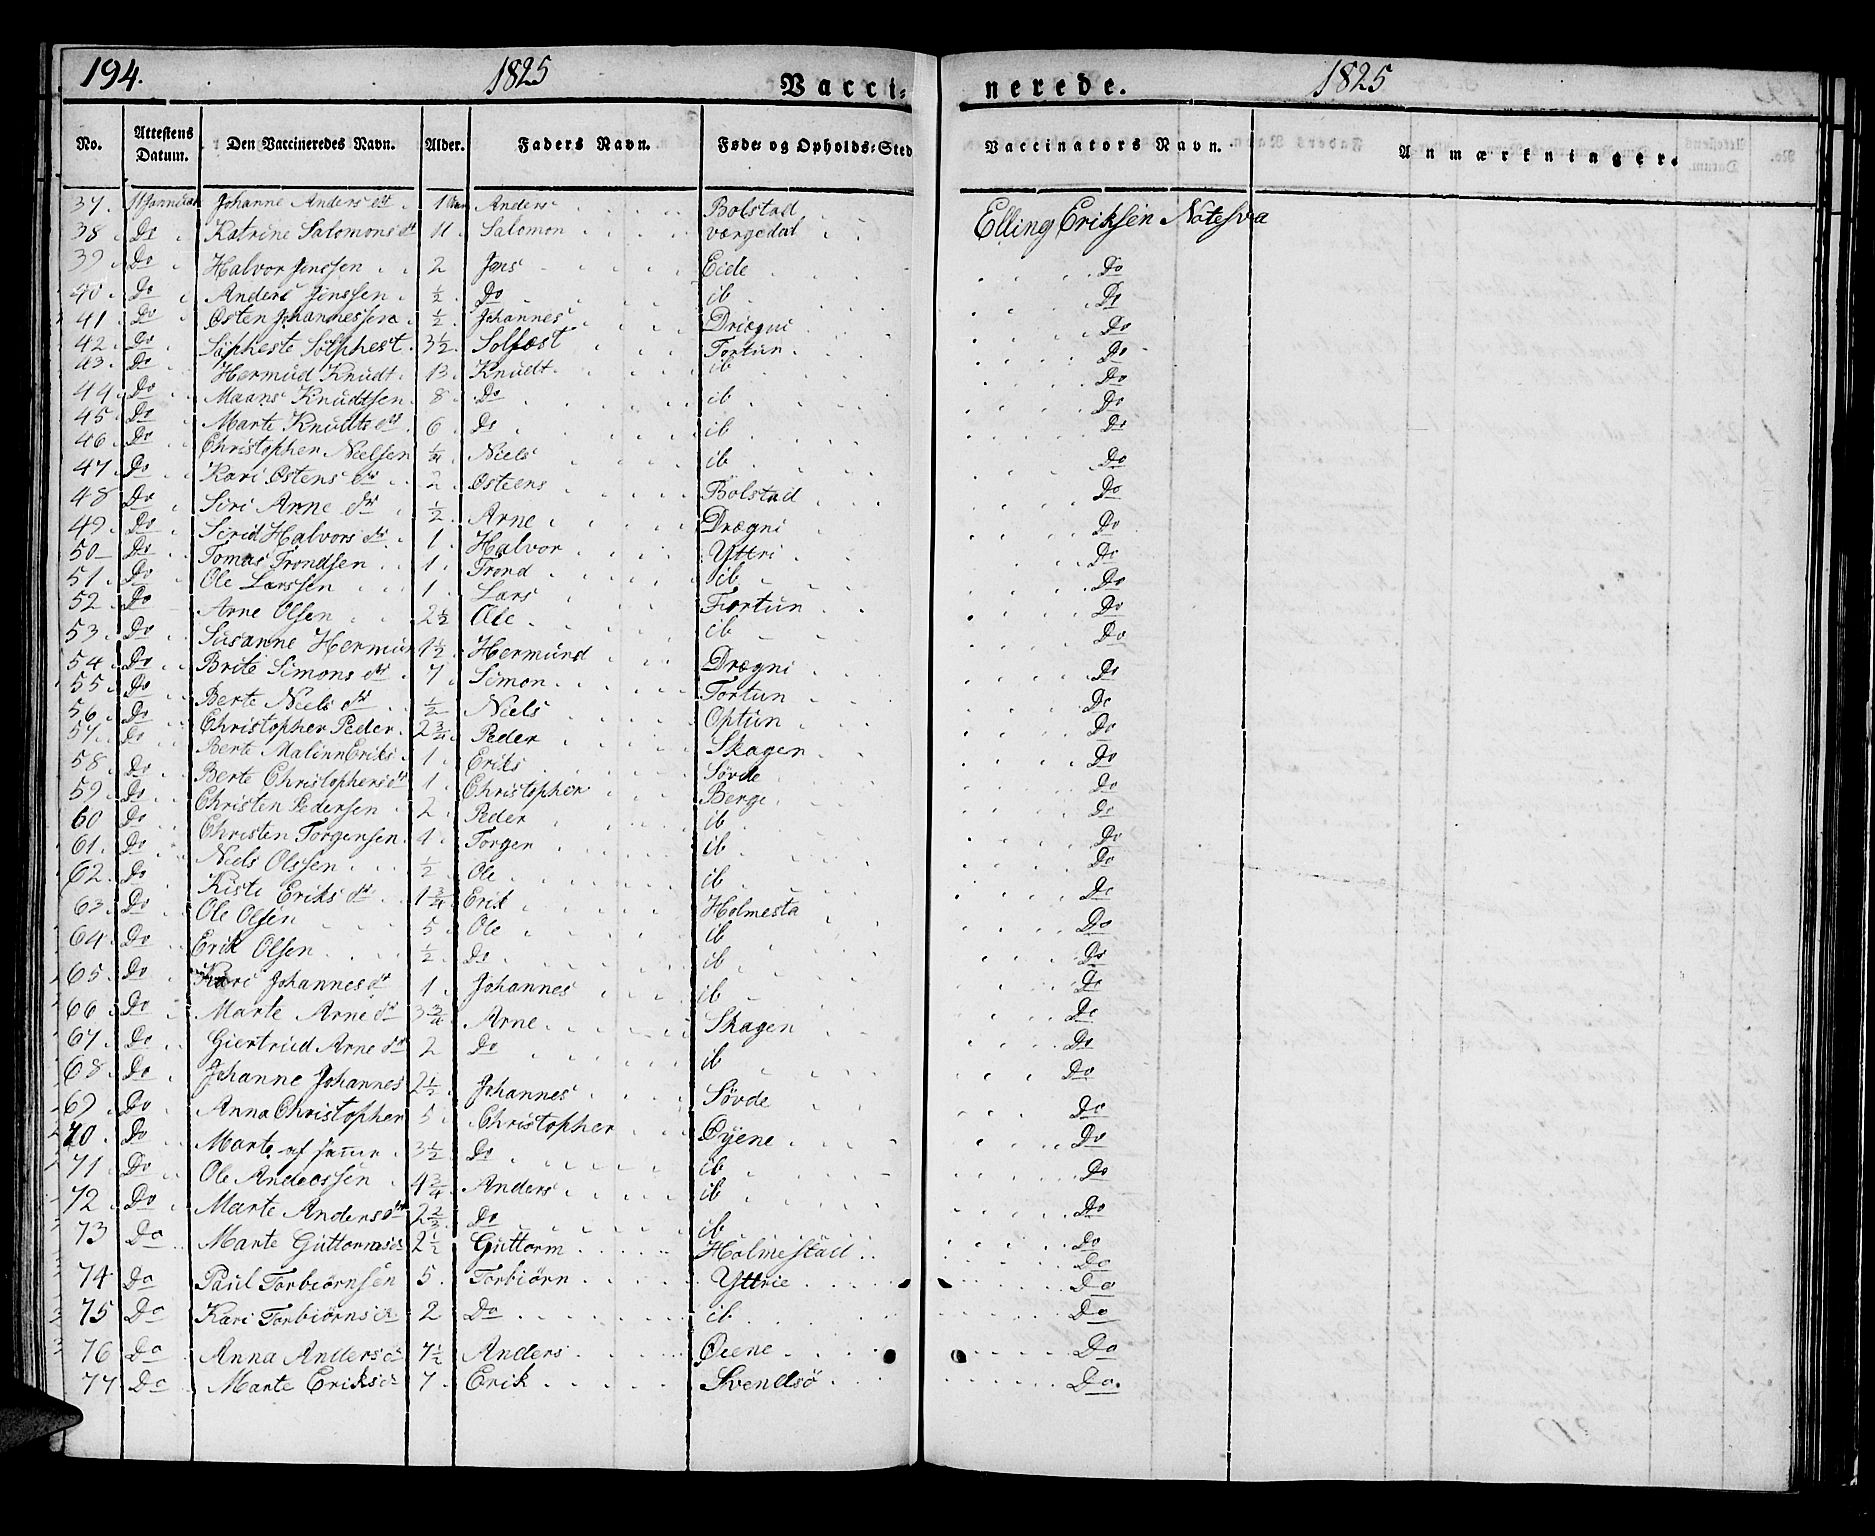 194. 1825 Vacci= nerede. 1825
No. Attestens Datum. Den Vaccineredes Navn. Alder. Faders Navn. Føde= og Opholds=Sted Vaccinators Navn. Anmærkninger.
37. Johanne Anders dtr 1 Anders Bolstad Elling Eriksen Notesva
38 Do Katrine Salomons dtr 11 Salomon værgedal
39 Do Halvor Jenssen 2 Jens Eide Do
40 Do Anders Jenssen ½ Do ib Do
41 Do Østen Johannessen ½ Johannes Drægni Do
42 Do Søpheste Sølphest 3½ Solfæst Fortun Do
43 Do Hermud Knudt 13 Knudt ib Do
44 Do Maans Knudtsen 8 Do ib Do
45 Do Marte Knudts dtr 6 Do ib Do
46 Do Christopher Nielsen Niels ib Do
47 Do Kari Østens dtr 2 Østens Bolstad Do
48 Do Siri Arne dtr ½ Arne Drægni Do
49 Do Sirid Halvors dtr 1 Halvor Yttri Do
50 Do Tomas Trondsen 1 Trond ib Do
51 Do Ole Larssen 1 Lars Fortun Do
52 Do Arne Olsen 2½ Ole ib Do
53 Do Susanne Hermun 1½ Hermund Drægni Do
54 Do Brite Simons dtr 7 Simon Fortun Do
55 Do Berte Niels dtr ½ Niels Optun Do
56 Do Christopher Peder 2¾ Peder Skagen Do
57 Do Berte Malinn Eriks 1 Eriks Søvde Do
58 Do Berte Christophers dtr 1 Christopher Berge Do
59 Do Christen Pedersen 2 Peder ib Do
60 Do Christen Torgersen 4 Torger ib Do
61 Do Niels Olssen ½ Ole ib Do
62 Do Kiste Eriks dtr 1¾ Erik Holmesta Do
63 Do Ole Olsen 5 Ole ib Do
64 Do Erik Olsen ½ Do ib Do
65 Do Kari Johannes dtr 1 Johannes ib Do
66 Do Marte Arne dtr 3¾ Arne Skagen Do
67 Do Giertrud Arne dtr 2 Do ib Do
68 Do Johanne Johannes 2½ Johannes Søvde Do
69 Do Anna Christopher 5 Christopher Øyene Do
70 Do Marte af samme 3½ Do ib Do
71 Do Ole Anderssen 4¾ Anders ib Do
72 Do Marte Anders dtr 2⅔ Do ib Do
73 Do Marte Guttorms dr 2½ Guttorm Holmestad Do
74 Do Paul Torbiørnsen 5 Torbiørn Yttrie Do
75 Do Kari Torbiørns dr 2 Do ib Do
76 Do Anna Anders dr 7½ Anders Øiene Do
77 Do Marte Eriks dr 7 Erik Svendsø Do.